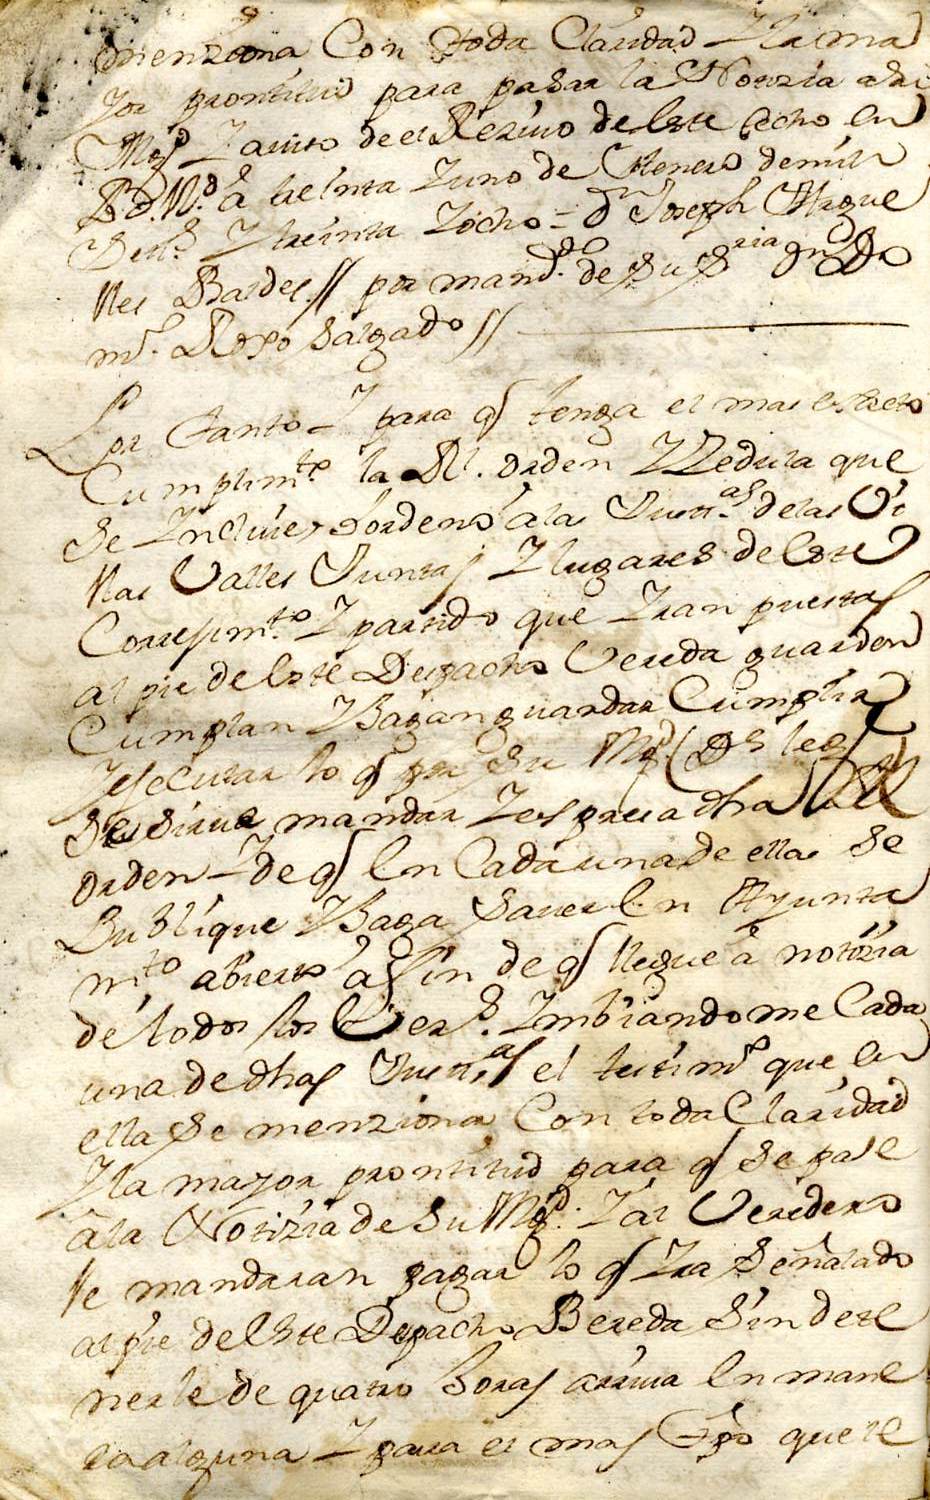 menziona Con toda Claridad Y la ma
yor prontitud para pasar la Notizia a su
Mgd. Y aviso de el Rezivo de este echo en
a treinta Y uno de Henero de mill
Settos. Y treinta Y ocho = dn Joseph Argue
lles Baldes // por mandd.do de su Sria Anto. Do
mo. Roxo salgado //
Por tanto = Y para q tenga el mas exsacto
Cumplimto. la Rl. orden Y Zedula que
se Yncluie, hordeno a las Justt.as de las Vi
llas Valles Juntas Y lugares de este
Correximto. Y partido que Yran puestas
al pie de este Despacho Vereda guarden
Cumplan Y hagan guardar Cumplir
Y esecutar lo q por Su Mgd (Ds. le g)
se sirve mandar Y espresa dha Rl.
orden = Y de q en Cada una de ellas se
Publique Y haga saver en Ayunta
mto abierto a fin de q llegue a notizia
de todos los Vezs. Ymbiandome Cada
una de dhas Justt.as el testimo que en
ella se menziona Con toda Claridad
Y la mayor prontitud para q se pase
a la Notizia de su Mgd. Y al Veredero
le mandaran pagar lo q Yra señalado
al pie de este Despacho Bereda sin dete
nerle de quatro horas arriva en mane
ra alguna Y para el mas tpo que le